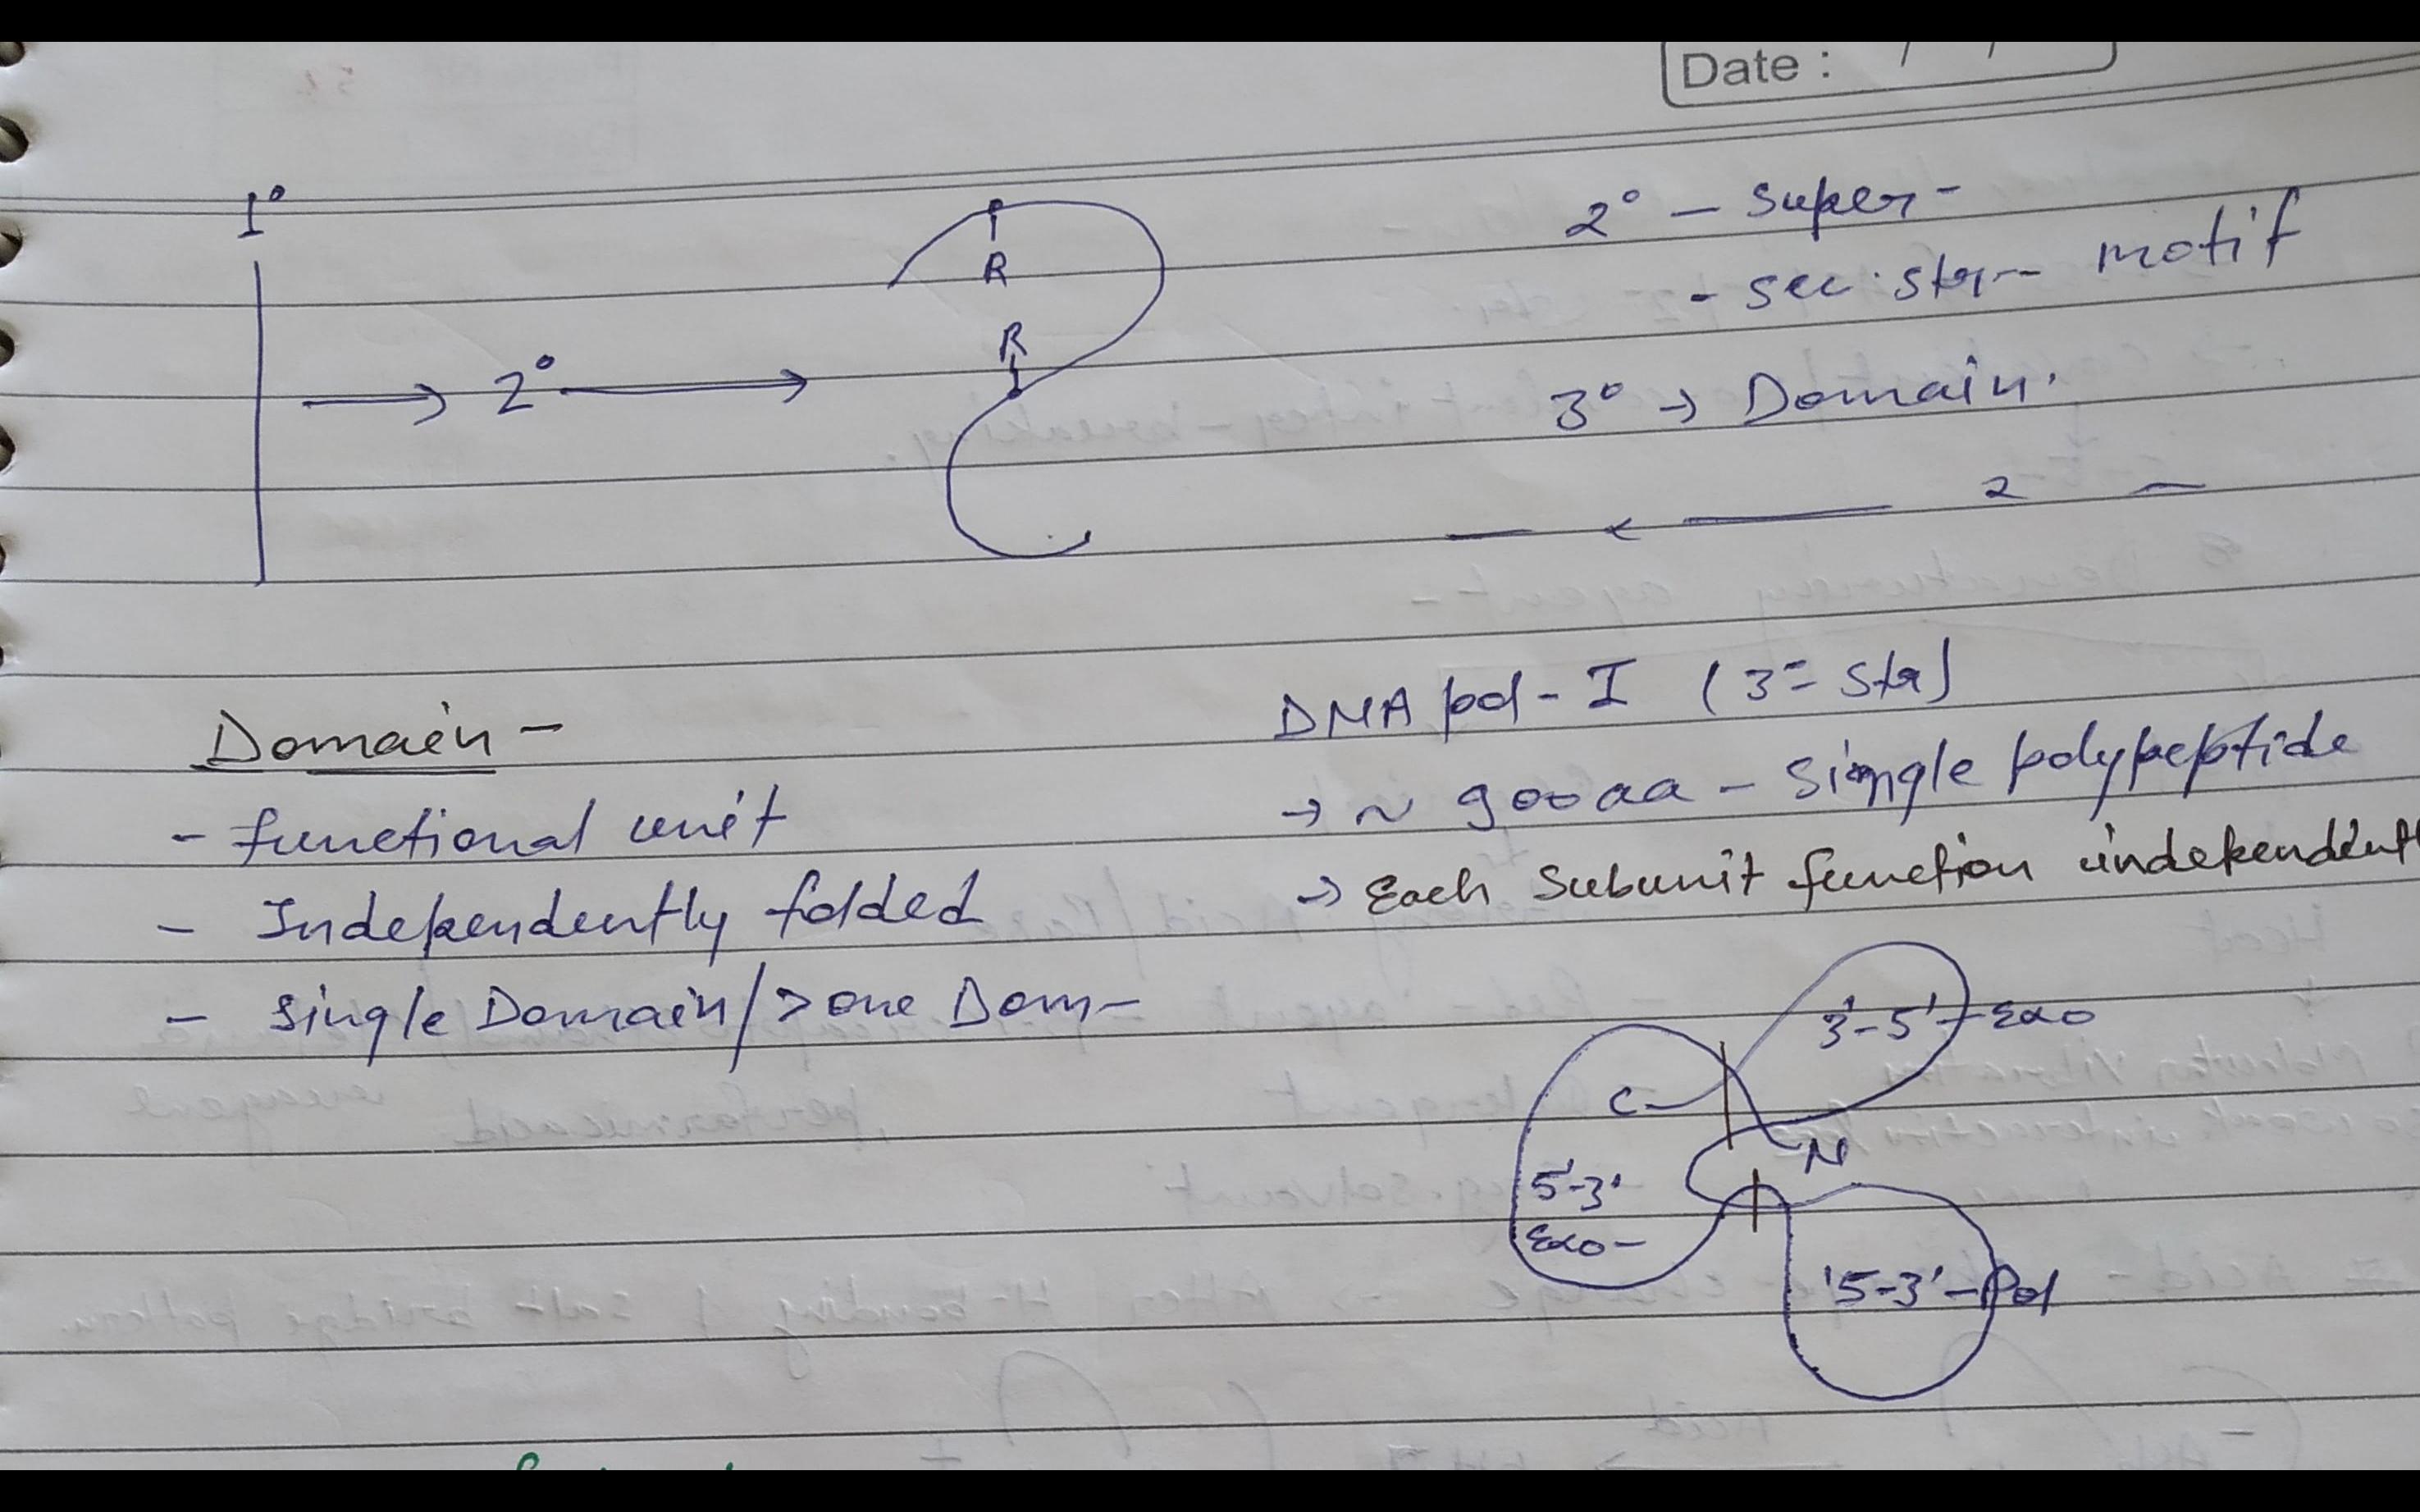 Date : / /
I°
R
R
→ 2° →
2° – super -
- sec. str – motif
3° → Domain.
Domain –
- functional unit
- Independently folded
- single Domain / > one Dom –
DNA pol - I (3° str)
→ ~ 900 aa – single polypeptide
→ Each subunit function independent
3'-5' Exo
C
N
5'-3'
Exo –
'5-3' – Pol